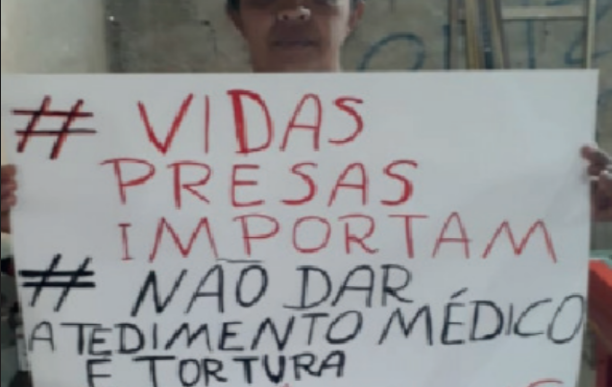 # VIDAS
PRESAS
IMPORTAM
# NÃO DAR
ATEDIMENTO MÉDICO
E TORTURA